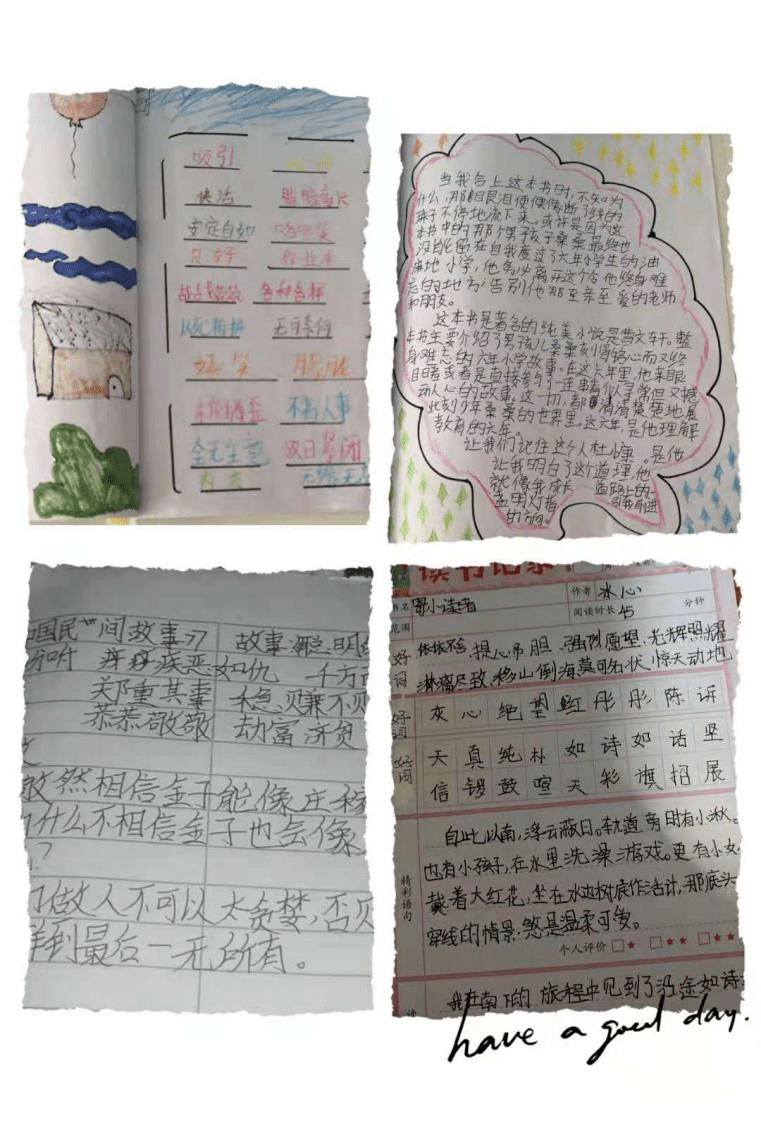 吸引
快活
安定自如 哈哈笑
良好 作业本
各种各样
无可奈何
不省人事
全无主意 双目紧闭
当我合上这本书时,不知为
什么,那眼泪便像断了线的
珠子不停地流下来。或许是因为这
本书中的那个男孩子桑桑最终也
没能留在自我度过了六年小学生的油
麻地小学,他务必离开这个令他终身难
忘的地方,告别他那至亲至爱的老师
和朋友。
这本书是著名的纯美小说是曹文轩。整
本书主要介绍了男孩儿桑桑刻骨铭心而又终
身难忘的六年小学故事。在这六年里,他亲眼
目睹或者是直接参与了一连串看似寻常但又撼
动人心的故事。这一切,都清清楚楚地展
此刻少年桑桑的世界里。这六年,是他理解
教育的六年。
让我们记住这个人杜小康。是他
让我明白了这道理,他
就像我成长道路上的一
盏明灯指引我前进
的方向。
国民间故事》 故事:聪明
疾恶如仇 千方
郑重其事 稳赚不
恭恭敬敬 劫富济贫
既然相信金子能像庄稼
什么不相信金子也会像
?
们做人不可以太贪婪,否则
到最后一无所有。
读书记录
书名 寄小读者 作者 冰心
范围 阅读时长 45 分钟
好词 依依不舍、提心吊胆、强烈愿望、光辉照耀
淋漓尽致、移山倒海、莫可名状、惊天动地
好词 灰心 绝望 虹彤彤 陈诉
好词 天真纯朴 如诗如话 坚
信 锣鼓喧天 彩旗招展
精彩语句
自此以南,浮云蔽日。轨道旁时有小湫。
也有小孩子,在水里洗澡游戏。更有小女
戴着大红花,坐在水边树底作活计,那底头
穿线的情景,煞是温柔可爱。
个人评价 □★ □★★ □★★
我在南下的旅程中见到了沿途如诗
have a good day.